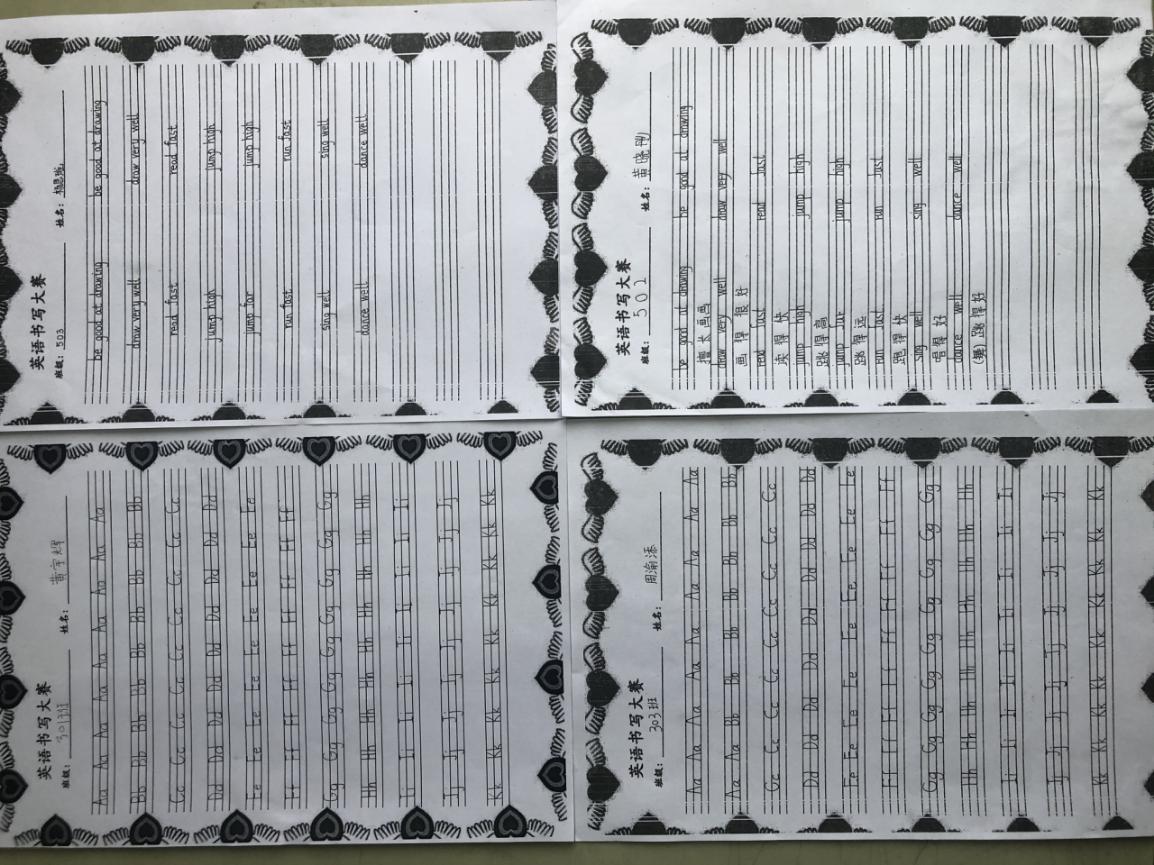 英语书写大赛
班级: 301班 姓名: 黄宇辉
Aa Aa Aa Aa Aa Aa Aa
Bb Bb Bb Bb Bb Bb Bb
Cc Cc Cc Cc Cc Cc Cc
Dd Dd Dd Dd Dd Dd Dd
Ee Ee Ee Ee Ee Ee Ee
Ff Ff Ff Ff Ff Ff Ff
Gg Gg Gg Gg Gg Gg Gg
Hh Hh Hh Hh Hh Hh Hh
Ii Ii Ii Ii Ii Ii Ii
Jj Jj Jj Jj Jj Jj Jj
Kk Kk Kk Kk Kk Kk Kk
英语书写大赛
班级: 503 姓名:
be good at drawing be good at drawing
draw very well draw very well
read fast read fast
jump high jump high
jump far jump high
run fast run fast
sing well sing well
dance well dance well
英语书写大赛
班级: 303班 姓名: 周渝添
Aa Aa Aa Aa Aa Aa Aa Aa Aa
Aa Aa Bb Bb Bb Bb Bb Bb Bb
Cc Cc Cc Cc Cc Cc Cc Cc Cc
Dd Dd Dd Dd Dd Dd Dd Dd Dd
Ee Ee Ee Ee Ee Ee Ee Ee Ee
Ff Ff Ff Ff Ff Ff Ff Ff Ff
Gg Gg Gg Gg Gg Gg Gg Gg Gg
Hh Hh Hh Hh Hh Hh Hh Hh Hh
Ii Ii Ii Ii Ii Ii Ii Ii
Jj Jj Jj Jj Jj Jj Jj Jj
Kk Kk Kk Kk Kk Kk Kk Kk
英语书写大赛
班级: 502 姓名:
be good at drawing be good at drawing
擅长画画
draw very well draw very well
画得很好
read fast read fast
读得快
jump high jump high
跳得高
jump far jump high
跳得远
run fast run fast
跑得快
sing well sing well
唱得好
dance well dance well
(舞)跳得好